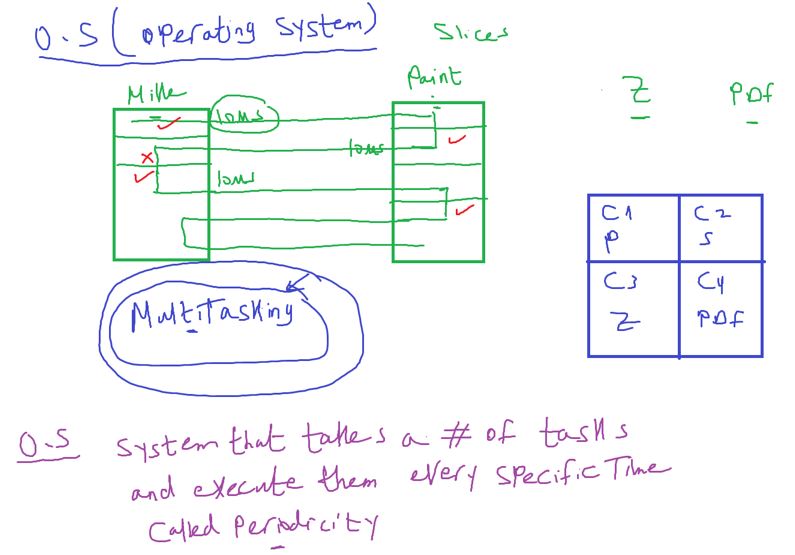 O.S (operating system)
Slices
Paint
Z
PDf
10ms
10ms
10ms
C1
C2
P
S
C3
C4
Z
PDf
MultiTasking
O.S system that takes a # of tasks
and execute them every specific Time
Called Periodicity